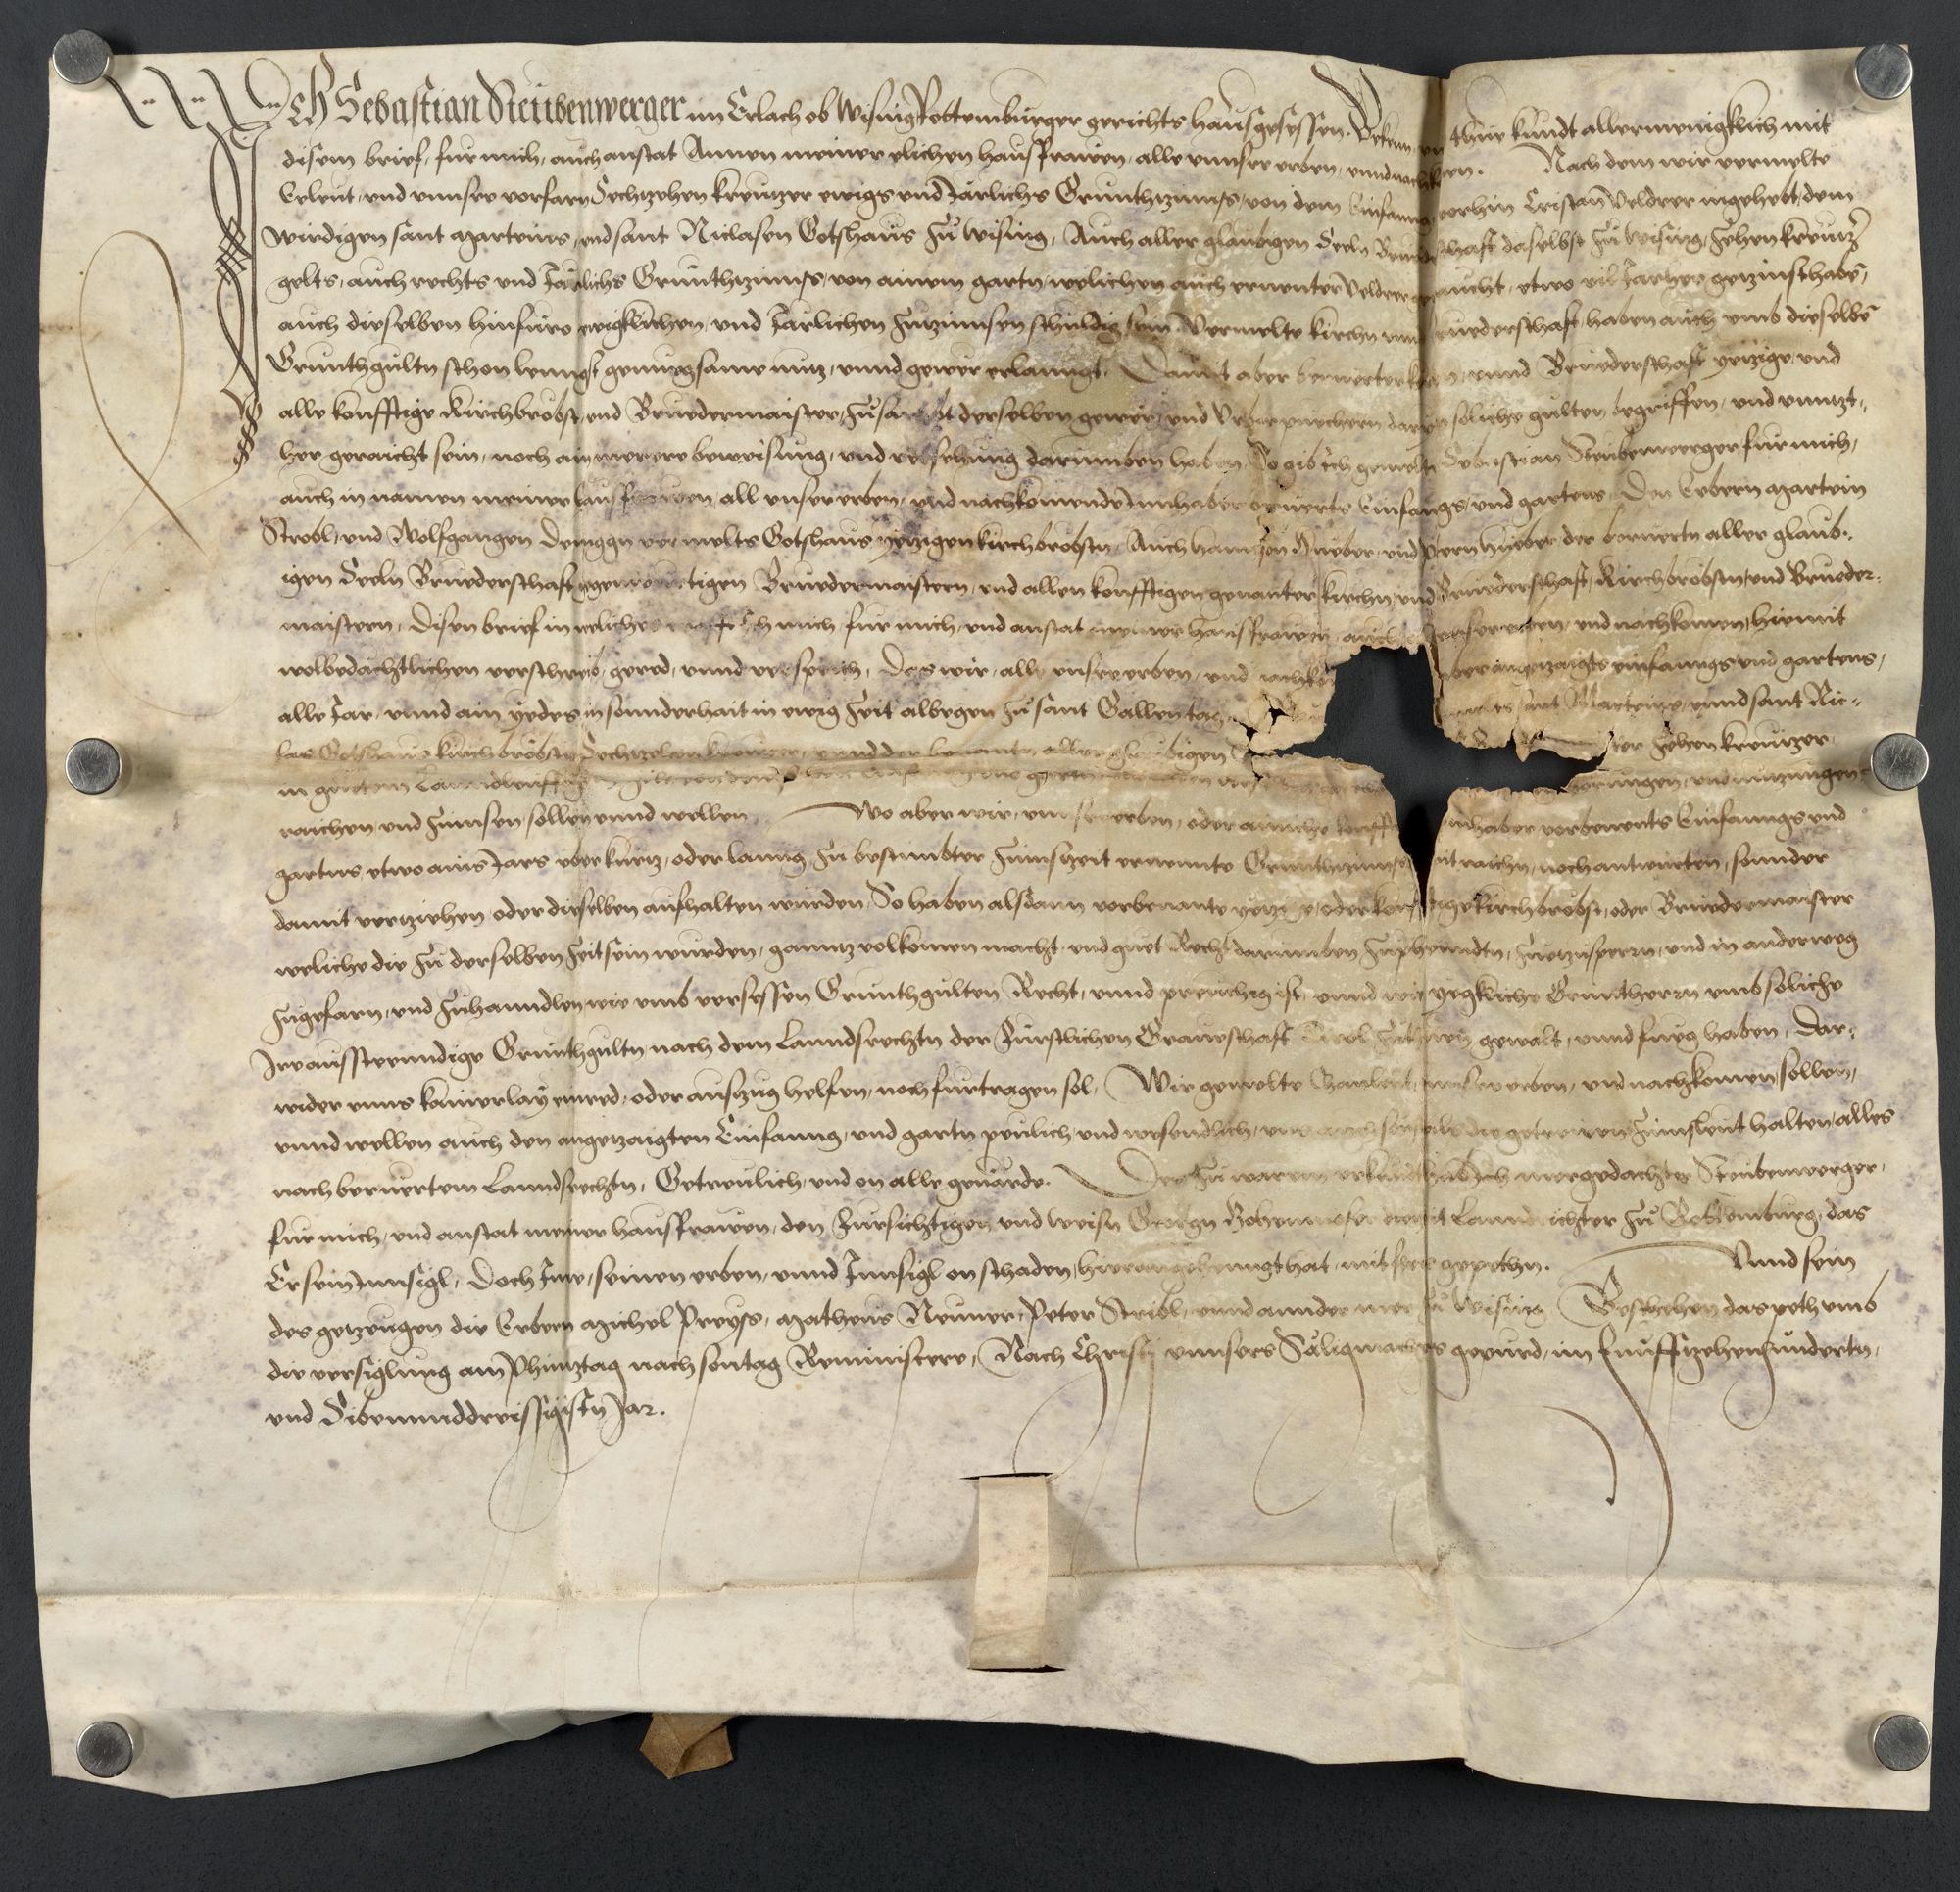 Ich Sebastian Steubenwerger im Erlach ob Wising Rottemburger gerichts hausgesessen. Beken thue kundt allermenigklich mit
disem brief, fur mich, auch anstat Annen meiner elichen hausfrawen, alle unnser erben, unnd nach Nach dem wir vermelte
Eeleut, und unnser vorfarn Sechtzehen kreutzer ewigs und Järlichs Grunthzinnss, von dem Einfanng vorhin Cristan Veldrer ingehebt, dem
wirdigen sant Marteins, und sant Niclasen Gotshaus zu Wising, Auch aller glaubigen Seeln daselbst zu Wising, zehen kreutzer
gelts, auch rechts und Järlichs Grunthzinnss, von ainem gartn, welichen auch ernenter Veldrer etwo vil Jar her getzinst haben,
auch dieselben hinfüro ewigklichen, und Järlichen zutzinnsen schuldig sein. Vermelte kirchn und bruederschaft, haben auch umb dieselbe
Grunthgultn schon lenngst genuegsame nutz, unnd gewer erlanngt. Damit aber berürter unnd Bruederschaft yetzige, und
alle konfftige Kirchbröbst, und Bruedermaister, zusambt derselben gewer, und Urbarpuechern soliche gulten begriffen, und unntzt-
her geraicht sein, noch ain merere beweisung, und versehung darumben haben, So gib ich gemelter Sebastian Steubenwerger fur mich,
auch in namen meiner hausfrawen, all unser erben, und nachkomende Innhaber berürts Einfangs, und gartens, Den Erbern Martein
Strobl, und Wolfgangen vermelts Gotshaus yetzigen kirchbröbstn, Auch Hannsen Hueber, und Hueber der berurtn aller glaub-
igen Seeln Bruederschaft gegenwurtigen Bruedermaistern, und allen konfftigen genanter kirchn, und Bruederschaft, Kirchbröbstn, und Brueder-
maistern, disen brief, in welichem ich mich, fur mich, und anstat meiner hausfrawen, auch unser erben, und nachkomen, hiemit
wolbedächtlichen verschreib, gered, unnd versprich, Das wir, alle unnser erben, und angetzaigts einfanngs, und gartens,
alle Jar, unnd ain yedes in sunnderhait in ewig zeit albegen zu sant Gallen tag sant Marteins, unnd sant Nic-
las Gotshaus kirchbröbstn Sechtzehen kreutzer, unnd der benantn aller glaubigen zehen kreutzer
in guetem und nutzungen
raichen und zinnsen sollen unnd wellen Wo aber wir, unnser erben, oder innhaber vorberuerts Einfanngs, und
gartns etwo ains Jars uber kurtz, oder lanng, zu bestimbter zinnszeit ernennte Grunthzinnss nit raichn, noch antwurten, sonnder
damit vertziehen oder dieselben aufhalten wurden, So haben alsdann vorbenante yetzige, oder konfftige kirchbröbst, oder Bruedermaister
weliche die zu derselben zeit sein wurden, ganntz volkomen macht, und guet Recht darumben zuphenndtn, zuetzusperrn, und in annder weg
zugefarn, und zuhanndlen, wie umb versessen Grunthgülten Recht, unnd preuchig ist, unnd wie yegkliche Grunthern umb soliche
Ire aussteenndige Grunthgultn nach dem Lanndsrechtn der Fürstlichen Graveschaft Tirol zuthuen gewalt, unnd fueg haben, Dar-
wider unns kainerlay einred, oder auszug helfen, noch furtragen sol, Wir gemelte unnser erben, und nachkomen, sollen,
unnd wellen auch den angetzaigten Einfanng, und gartn peulich, und wesendlich, zinnsleut halten, alles
nach berürtem Lanndsrechtn, Getreulich, und on alle gevärde. Des zu warem urkundt hab ich mergedachter Steubenwerger,
fur mich, und anstat meiner hausfrawen, den Fursichtigen und weisn Georgn Lanndrichter zu Rottemburg, das
Er sein Innsigl, doch Ime, seinen erben, unnd Innsigl on schaden, hieran gehenngt hat, mit gepethn. Unnd sein
des getzeugen die Erbern Michel Preyss, Matheus Neuner, Peter Strobl, unnd annder mer zu Wising Beschehen das peth umb
die versiglung am Phintztag nach sontag Reminiscere, Nach Christi unnsers Säligmachers gepurd, im funffzehenhundertn,
und Sibenunddreissigistn Jar.